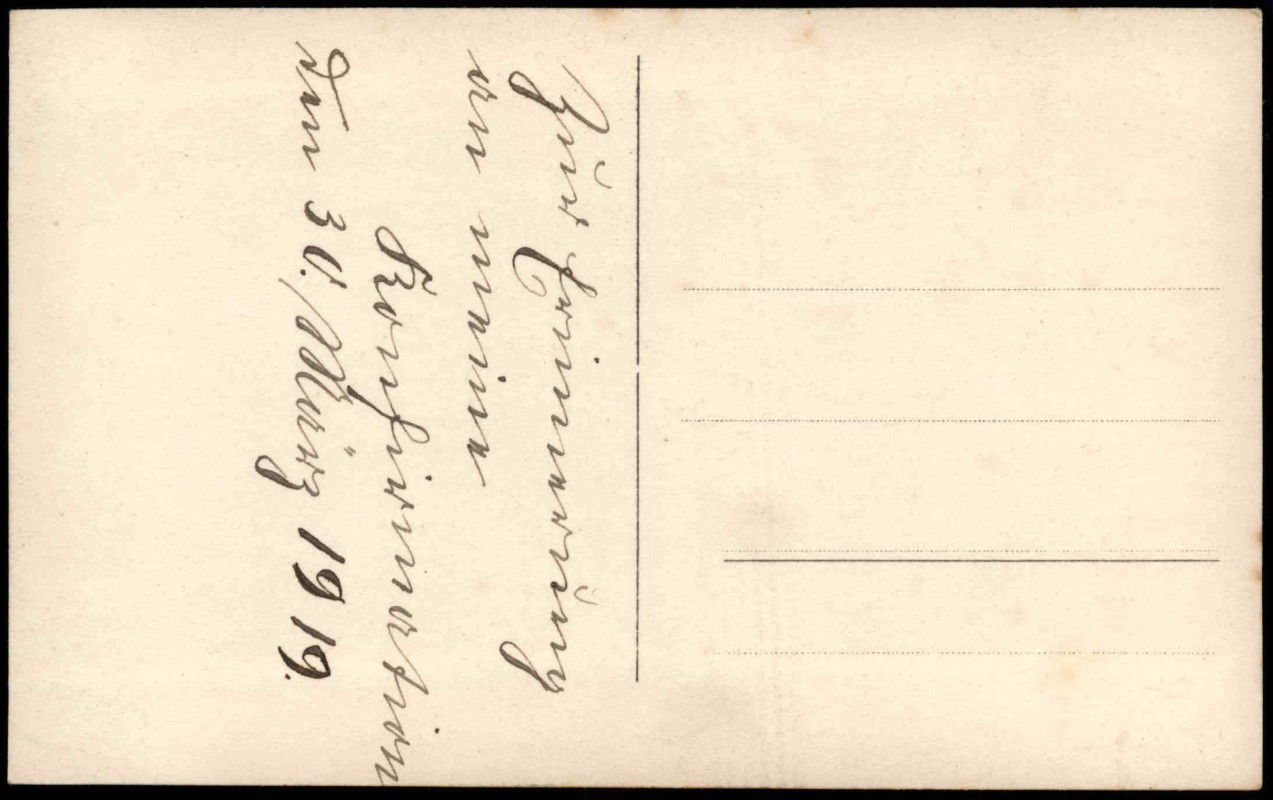 Zur Erinnerung
an meine
Konfirmation
den 30. März 1919.